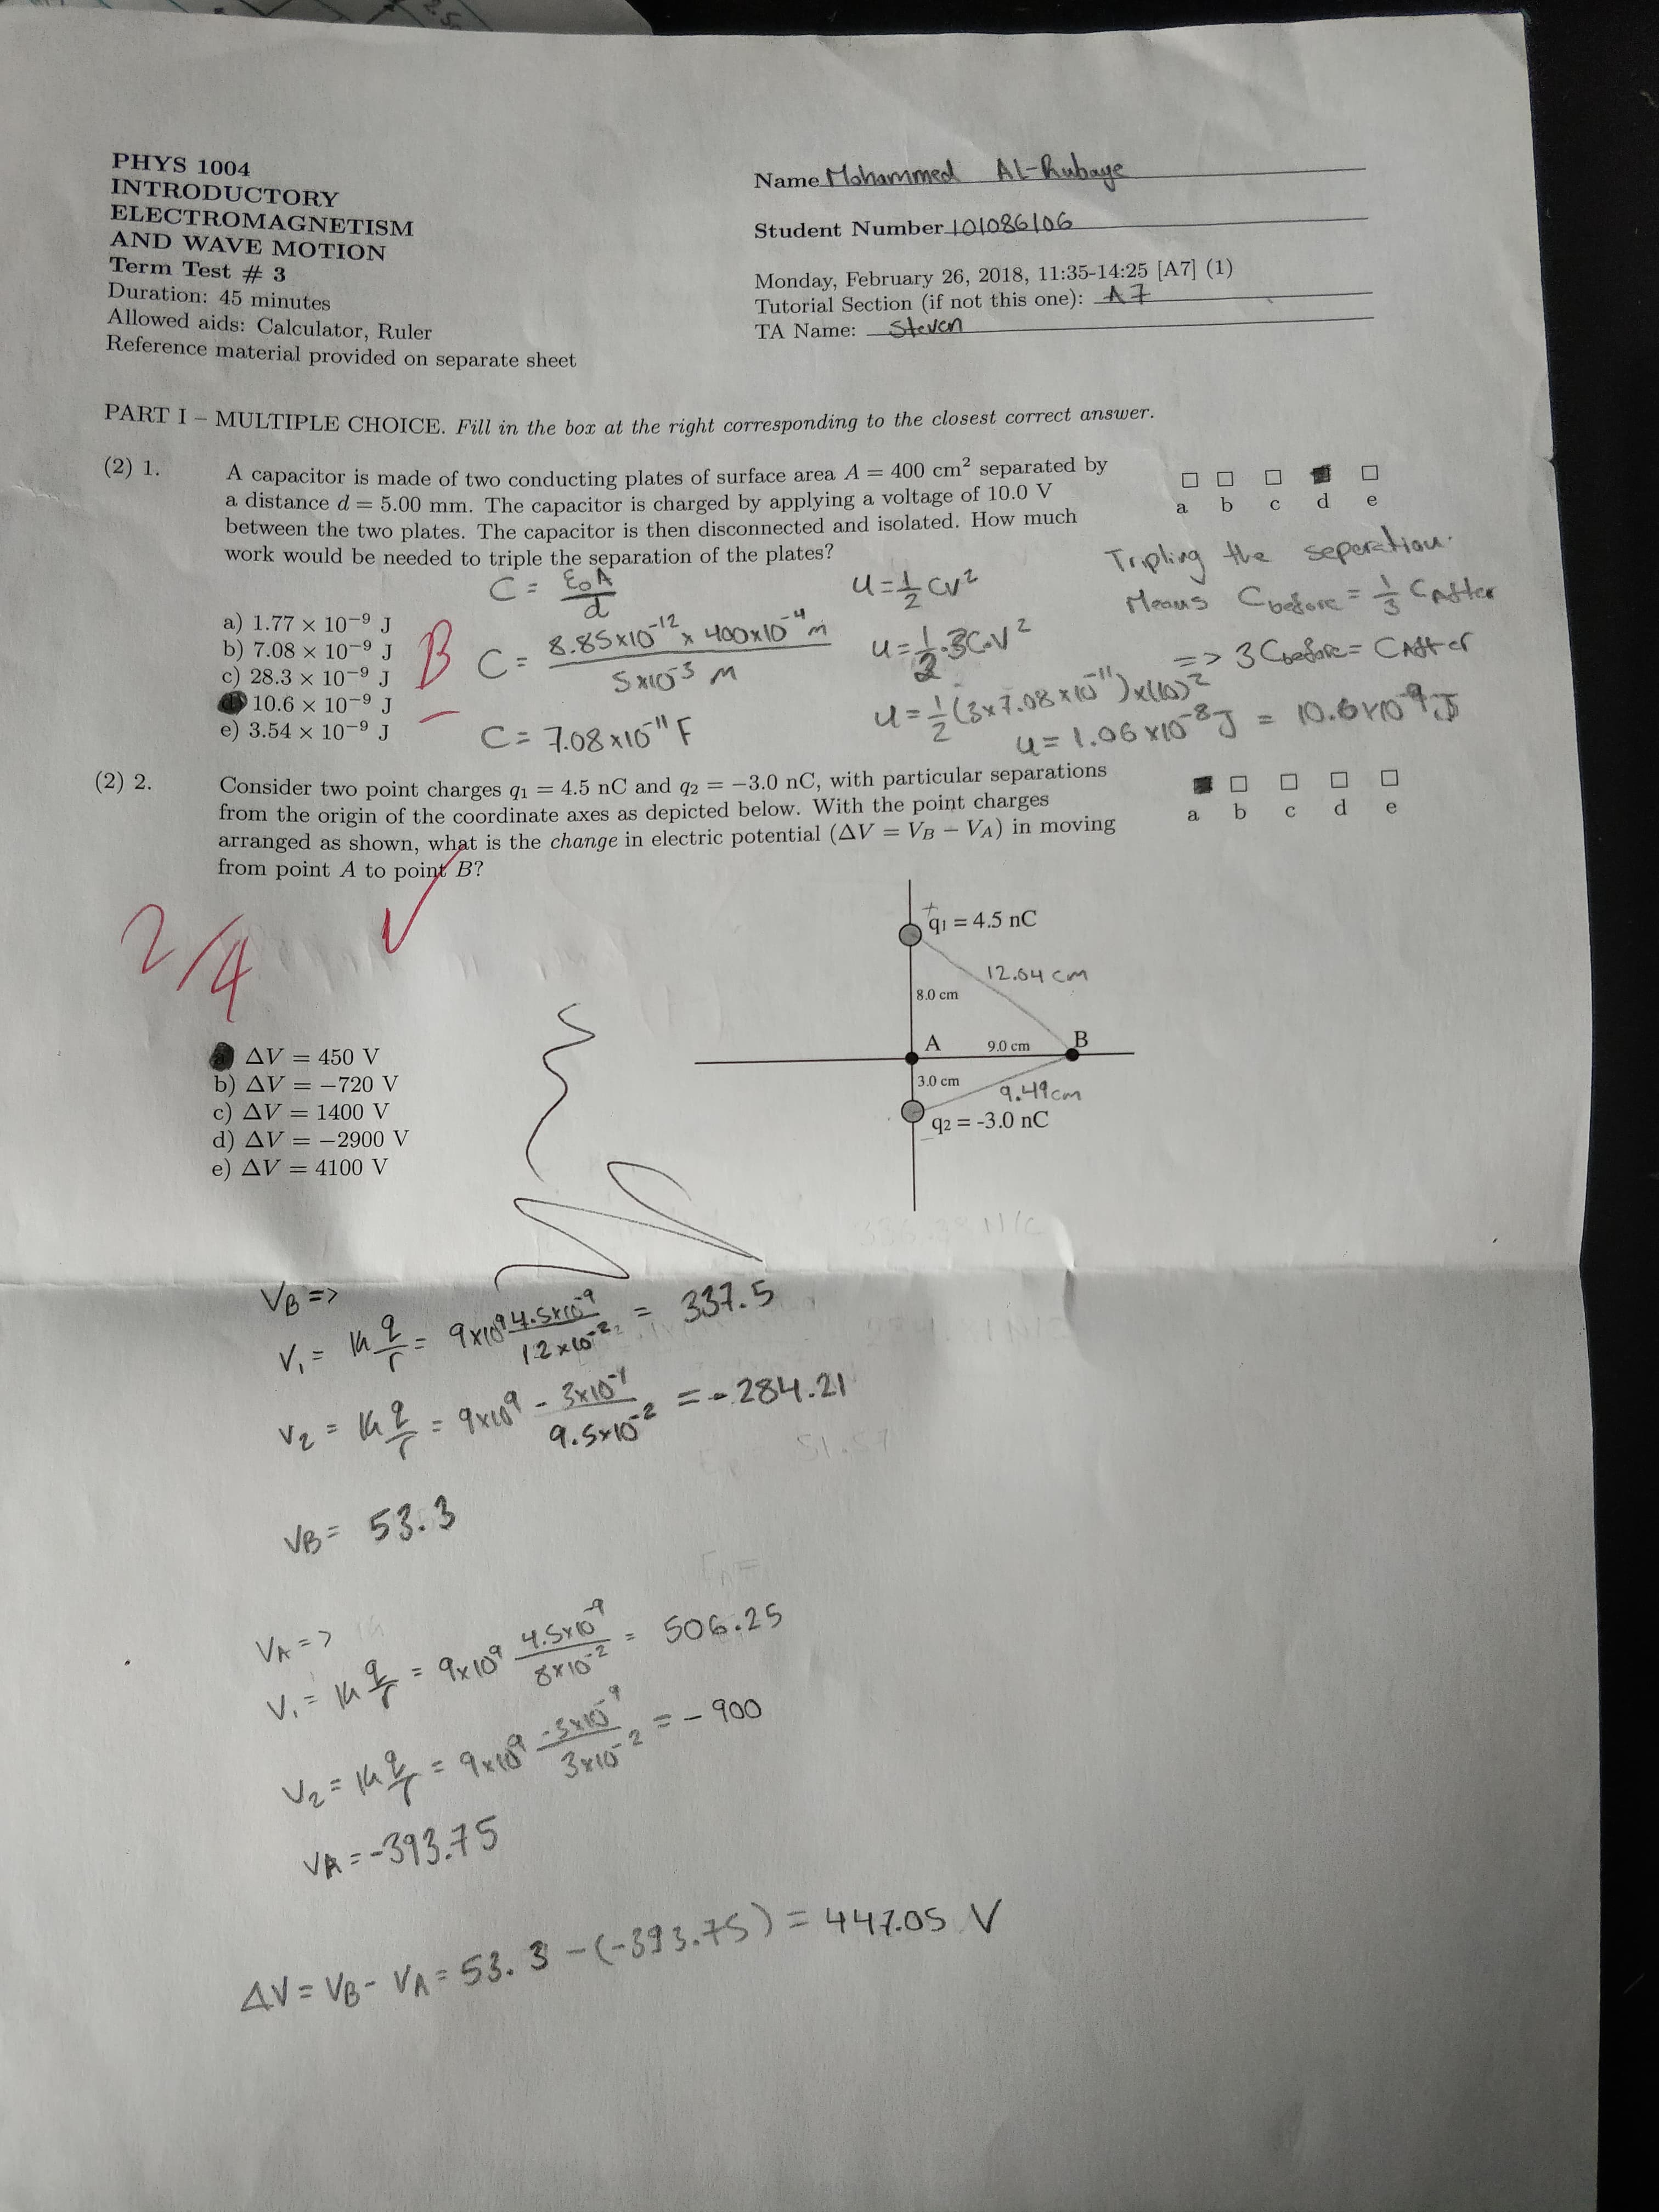 PHYS 1004
INTRODUCTORY
ELECTROMAGNETISM
AND WAVE MOTION
Term Test # 3
Duration: 45 minutes
Allowed aids: Calculator, Ruler
Reference material provided on separate sheet
Name Mohammed Al-Rubaye
Student Number 101086106
Monday, February 26, 2018, 11:35-14:25 [A7] (1)
Tutorial Section (if not this one): A7
TA Name: Steven
PART I – MULTIPLE CHOICE. Fill in the box at the right corresponding to the closest correct answer.
(2) 1. A capacitor is made of two conducting plates of surface area A = 400 cm² separated by
a distance d = 5.00 mm. The capacitor is charged by applying a voltage of 10.0 V
between the two plates. The capacitor is then disconnected and isolated. How much
work would be needed to triple the separation of the plates?
a b c d e
a) 1.77 × 10⁻⁹ J
b) 7.08 × 10⁻⁹ J
c) 28.3 × 10⁻⁹ J
d) 10.6 × 10⁻⁹ J
e) 3.54 × 10⁻⁹ J
B
C = ε₀A/d
C = 8.85×10⁻¹² × 400×10⁻⁴ m / 5×10⁻³ m
C = 7.08×10⁻¹¹ F
U = 1/2 CV²
U = 1/2 · 3C·V²
U = 1/2 (3×7.08×10⁻¹¹)×(10)²
U = 1.06×10⁻⁸ J = 10.6×10⁻⁹ J
Tripling the seperation
Means Cbefore = 1/3 CAfter
=> 3Cbefore = CAfter
(2) 2. Consider two point charges q₁ = 4.5 nC and q₂ = −3.0 nC, with particular separations
from the origin of the coordinate axes as depicted below. With the point charges
arranged as shown, what is the change in electric potential (ΔV = V_B − V_A) in moving
from point A to point B?
a b c d e
2/4
+
q₁ = 4.5 nC
12.04 cm
8.0 cm
A 9.0 cm B
3.0 cm
9.49cm
q₂ = -3.0 nC
ΔV = 450 V
b) ΔV = −720 V
c) ΔV = 1400 V
d) ΔV = −2900 V
e) ΔV = 4100 V
VB =>
V₁ = k q/r = 9×10⁹ 4.5×10⁻⁹/12×10⁻² = 337.5
V₂ = k q/r = 9×10⁹ -3×10⁻⁹/9.5×10⁻² = -284.21
VB = 53.3
VA =>
V₁ = k q/r = 9×10⁹ 4.5×10⁻⁹/8×10⁻² = 506.25
V₂ = k q/r = 9×10⁹ -3×10⁻⁹/3×10⁻² = -900
VA = -393.75
ΔV = VB - VA = 53.3 - (-393.75) = 447.05 V